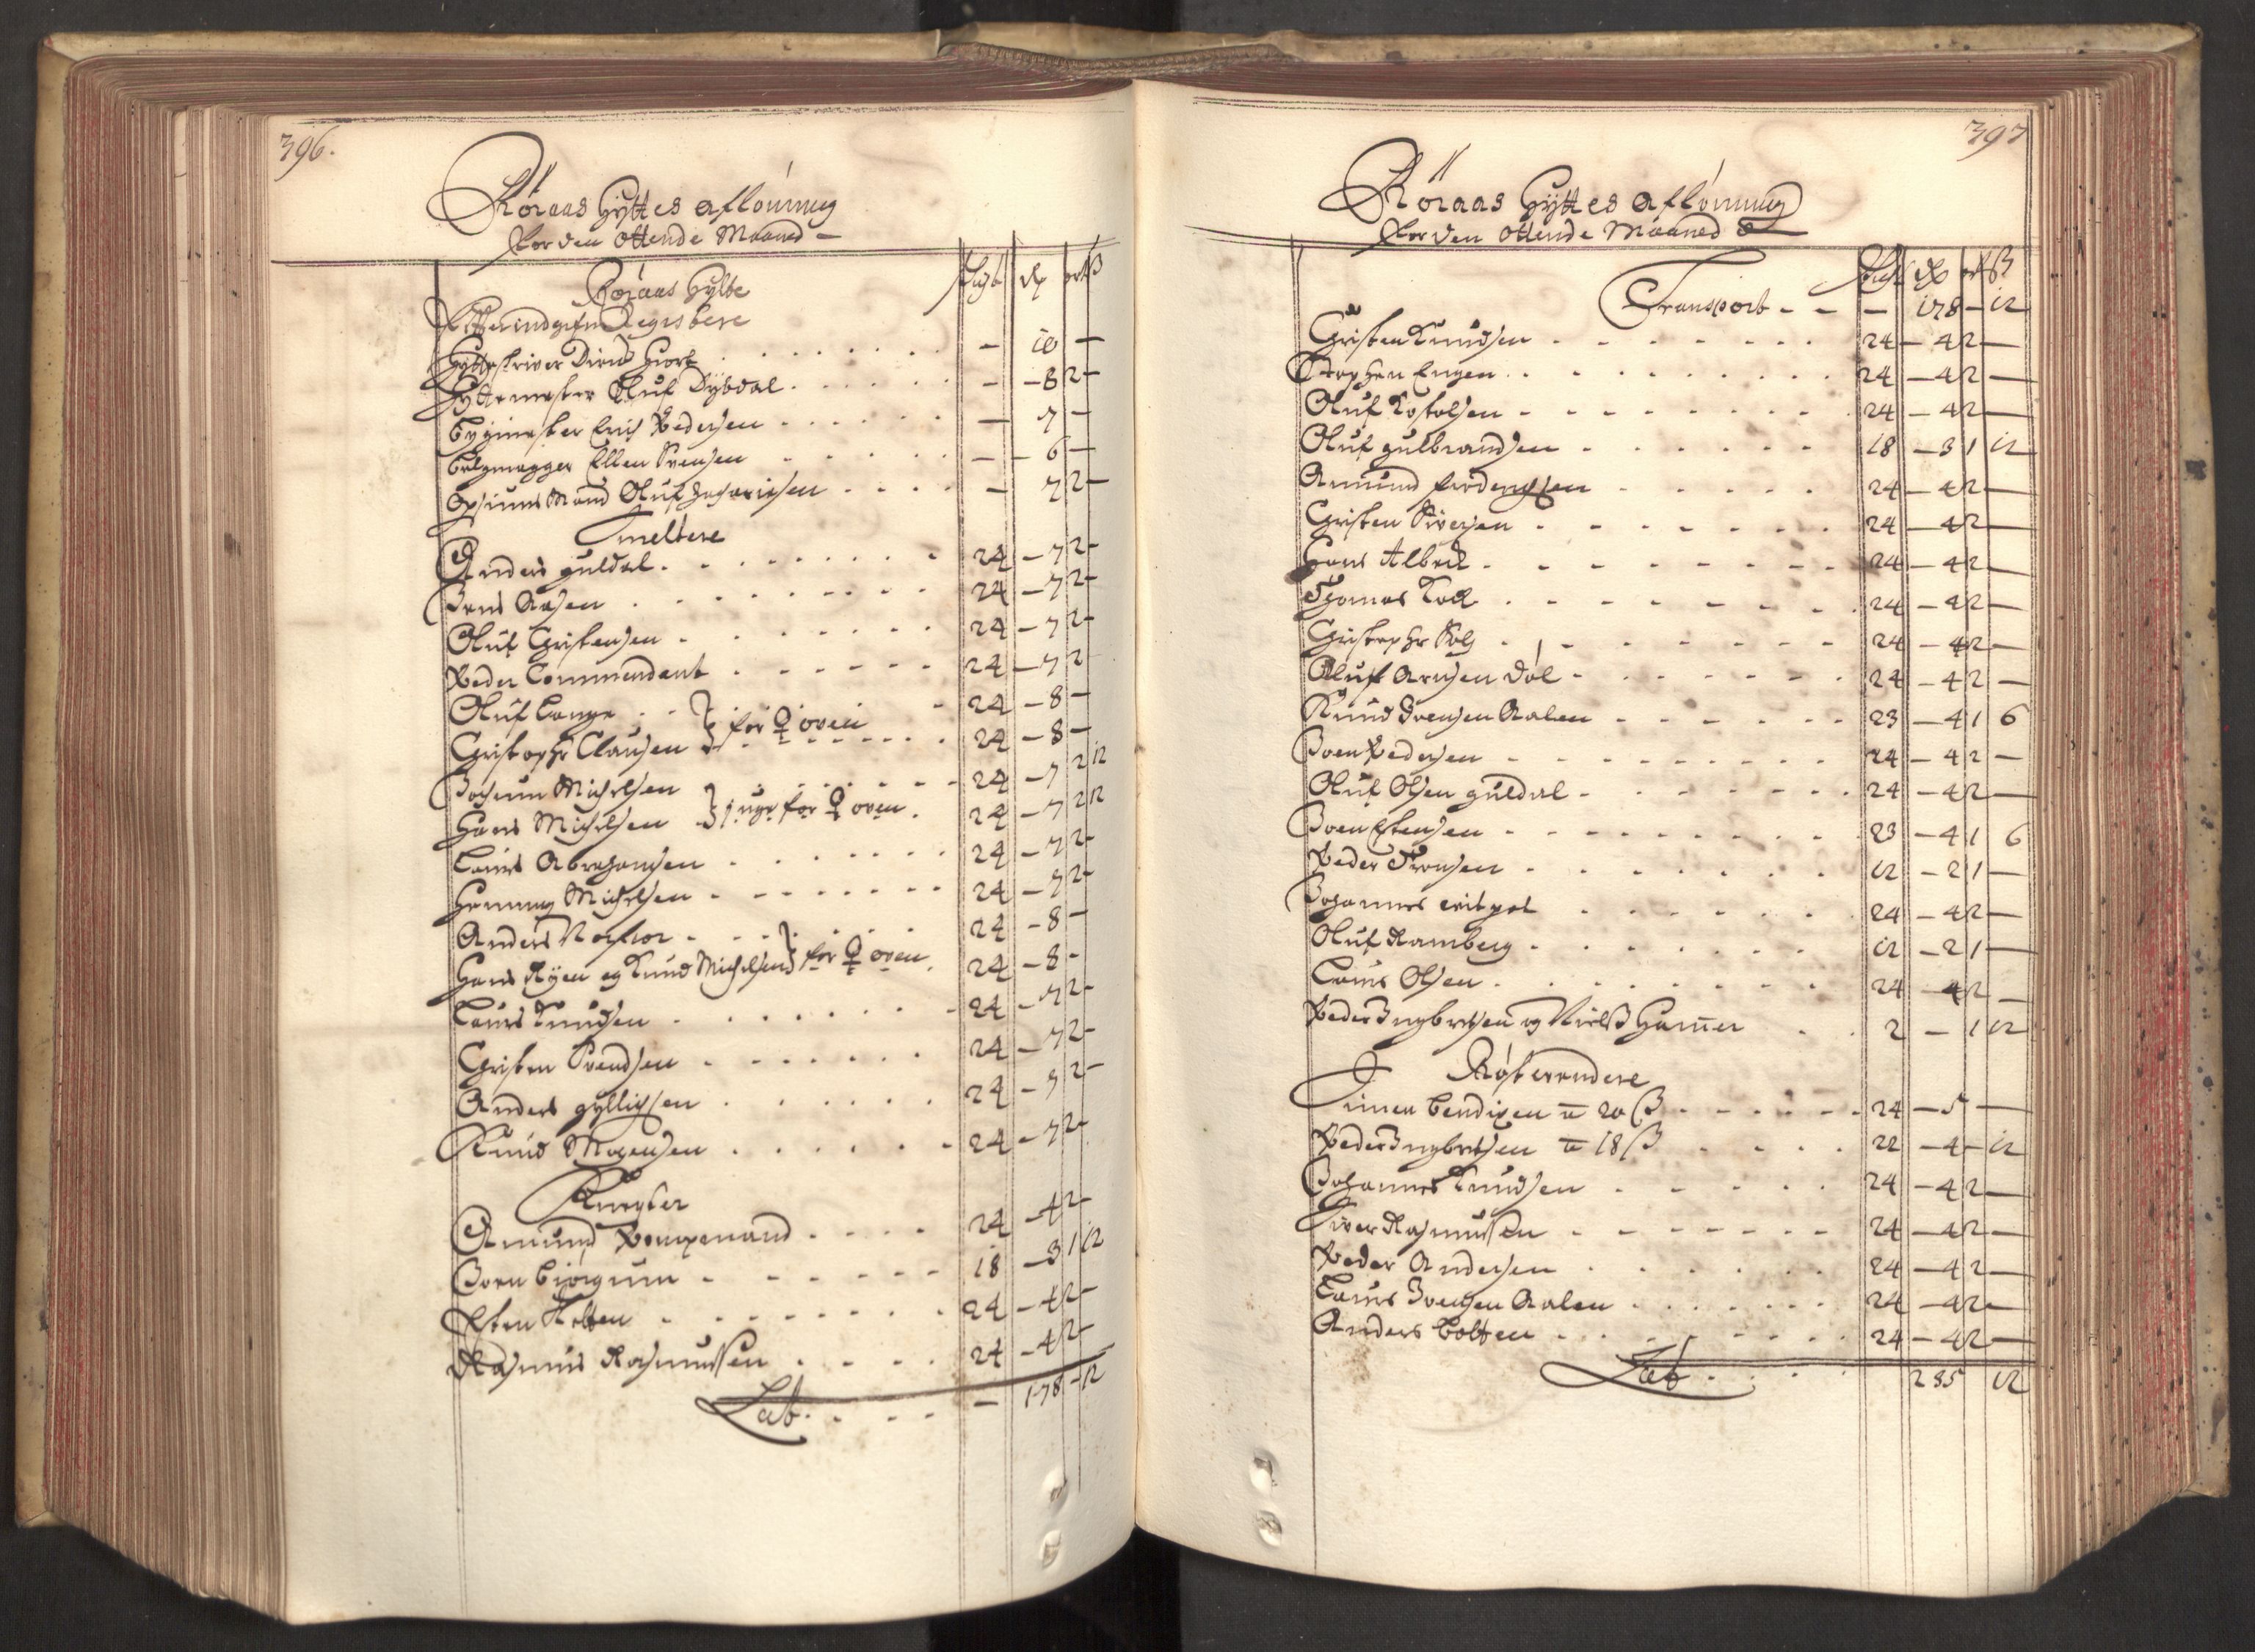 396.
Röraas Hyttes aflönning
For den Ottende Maaned
Röraas Hytte
Schst dlr ort ß
Efter indgifne Registere
Hytteskriver Hiort - 10 -
Hyttemester Oluf Dybdal - - 8 2 -
bygmester Erich Pedersen - 7 -
belgmagger Ellen Svensen - - 6 -
Opsiuns Mand Oluf Zachariesen - 7 2 -
Smeltere
Anders guldal 24 - 7 2 -
Jens Aasen 24 - 7 2 -
Oluf Christensen 24 - 7 2 -
Peder Commendant 24 - 7 2 -
Oluf Lange 24 - 8 -
Christopher Clausen } for ♀ oven 24 - 8 -
Jochum Michelsen 24 - 7 2 12
Hans Michelsen } 1 uge for ♀ oven 24 - 7 2 12
Laurs Abrahamsen 24 - 7 2 -
Henning Michelsen 24 - 7 2 -
Anders 24 - 8 -
Hans Ryen og Knud Michelsen } for ♀ oven 24 - 8 -
Laurs Knudsen 24 - 7 2 -
Christen Svendsen 24 - 7 2 -
Anders gyllichsen 24 - 7 2 -
Knud Mogensen 24 - 7 2 -
Knegter
Amund Pompemand 24 - 4 2 -
Joen biörgum 18 - 3 1 12
Esten Holten 24 - 4 2 -
Rasmus Rasmussen 24 - 4 2 -
Lat. - 178 - 12
397
Röraas Hyttes aflönning
For den Ottende Maaned
Schst dlr ort ß
Transport - - - 178 - 12
Christen Knudsen 24 - 4 2 -
Stephen Engen 24 - 4 2 -
Oluf 24 - 4 2 -
Oluf gulbrandsen 18 - 3 1 12
Amund Frederichsen 24 - 4 2 -
Christen Siversen 24 - 4 2 -
Hans Albret 24 - 4 2 -
Thomas Koch 24 - 4 2 -
Christopher 24 - 4 2 -
Oluf Arnsen Döl 24 - 4 2 -
Knud Joensen Aalen 23 - 4 1 6
Joen Pedersen 24 - 4 2 -
Oluf Olsen guldal 24 - 4 2 -
Joen Estensen 23 - 4 1 6
Peder Tronsen 12 - 2 1 -
Johannes 24 - 4 2 -
Oluf Ramberg 12 - 2 1 -
Laurs Olsen 24 4 2 -
Peder Ingbretsen og Nielß Hammer 2 - 1 12
Röstvendere
Simen bendixen a 20 ß 24 - 5 -
Peder Ingbretsen a 18 ß 22 - 4 - 12
Johannes Knudsen 24 - 4 2 -
Siver Rasmussen 24 - 4 2 -
Peder Andersen 24 - 4 2 -
Laurs Joensen Aalen 24 - 4 2 -
Anders Holten 24 - 4 2 -
Lat 285 12